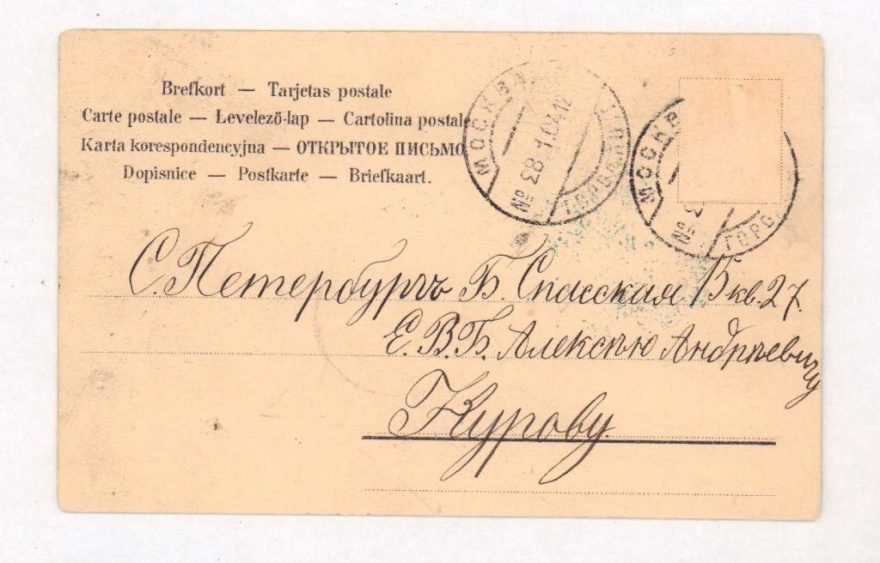 Brefkort — Tarjetas postale
Carte postale — Levelező-lap — Cartolina postale
Karta korespondencyjna — ОТКРЫТОЕ ПИСЬМО
Dopisnice — Postkarte — Briefkaart.
МОСКВА
1.04.12
№ 28
ГОРОД.
МОСКВА
№
ГОРО
С. Петербургъ Б. Спасская 15 кв. 27.
Е. В. Б. Алексѣю Андрѣевичу
Курову.